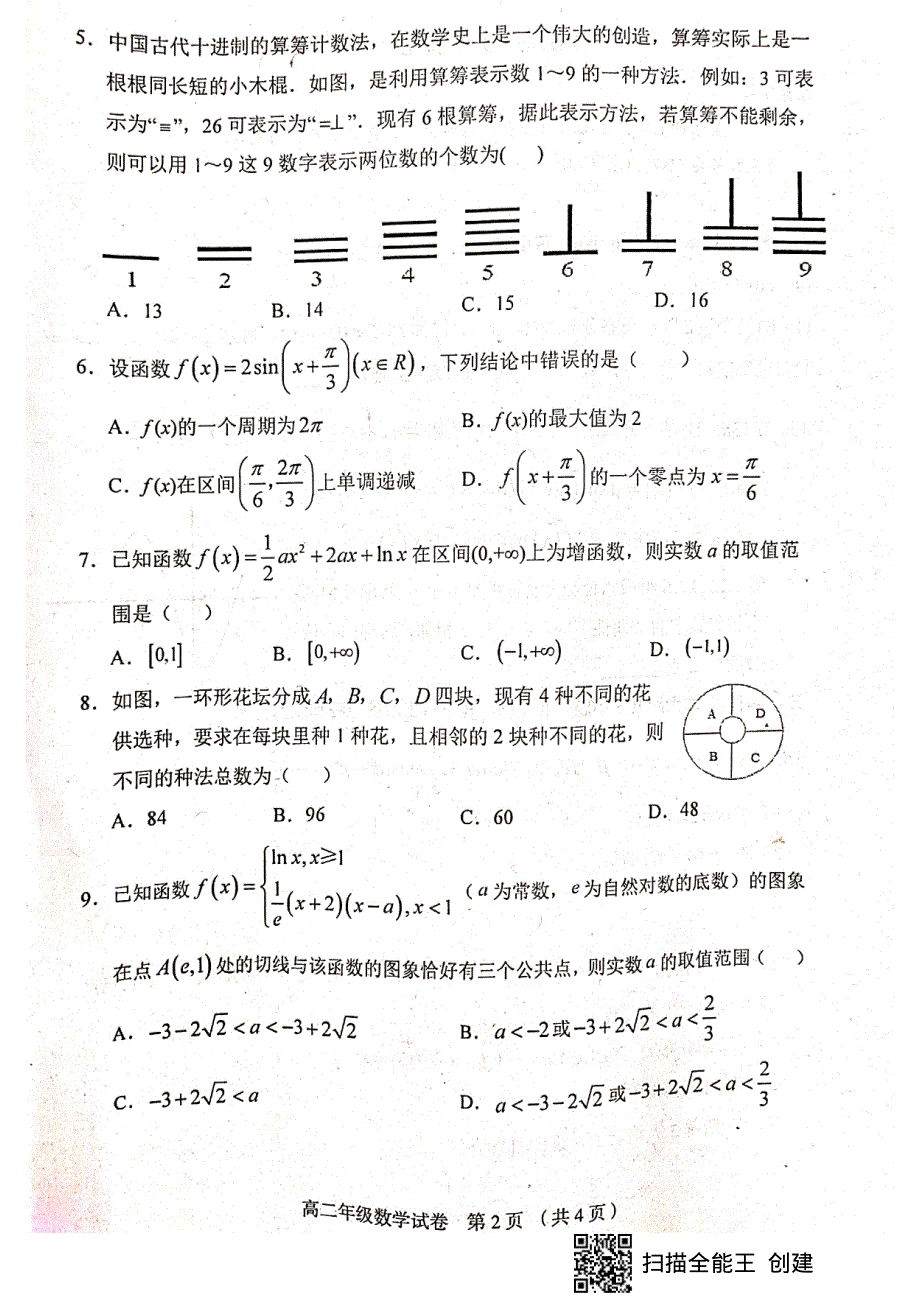 5．中国古代十进制的算筹计数法，在数学史上是一个伟大的创造，算筹实际上是一
根根同长短的小木棍．如图，是利用算筹表示数 1～9 的一种方法．例如：3 可表
示为“≡”，26 可表示为“=⊥”．现有 6 根算筹，据此表示方法，若算筹不能剩余，
则可以用 1～9 这 9 数字表示两位数的个数为(　　)
1 2 3 4 5 6 7 8 9
A．13 B．14 C．15 D．16
6．设函数 f(x)=2sin(x+π/3)(x∈R)，下列结论中错误的是（　　）
A．f(x)的一个周期为2π B．f(x)的最大值为2
C．f(x)在区间(π/6,2π/3)上单调递减 D．f(x+π/3)的一个零点为 x=π/6
7．已知函数 f(x)=1/2ax²+2ax+ln x 在区间(0,+∞)上为增函数，则实数 a 的取值范
围是（　　）
A．[0,1] B．[0,+∞) C．(−1,+∞) D．(−1,1)
8．如图，一环形花坛分成 A，B，C，D 四块，现有 4 种不同的花
供选种，要求在每块里种 1 种花，且相邻的 2 块种不同的花，则
不同的种法总数为（　　）
A D
B C
A．84 B．96 C．60 D．48
9．已知函数 f(x)={ln x, x≥1; 1/e(x+2)(x−a), x<1（a 为常数，e 为自然对数的底数）的图象
在点 A(e,1) 处的切线与该函数的图象恰好有三个公共点，则实数 a 的取值范围（　　）
A．−3−2√2<a<−3+2√2 B．a<−2或−3+2√2<a<2/3
C．−3+2√2<a D．a<−3−2√2或−3+2√2<a<2/3
高二年级数学试卷 第 2 页 （共 4 页）
扫描全能王 创建